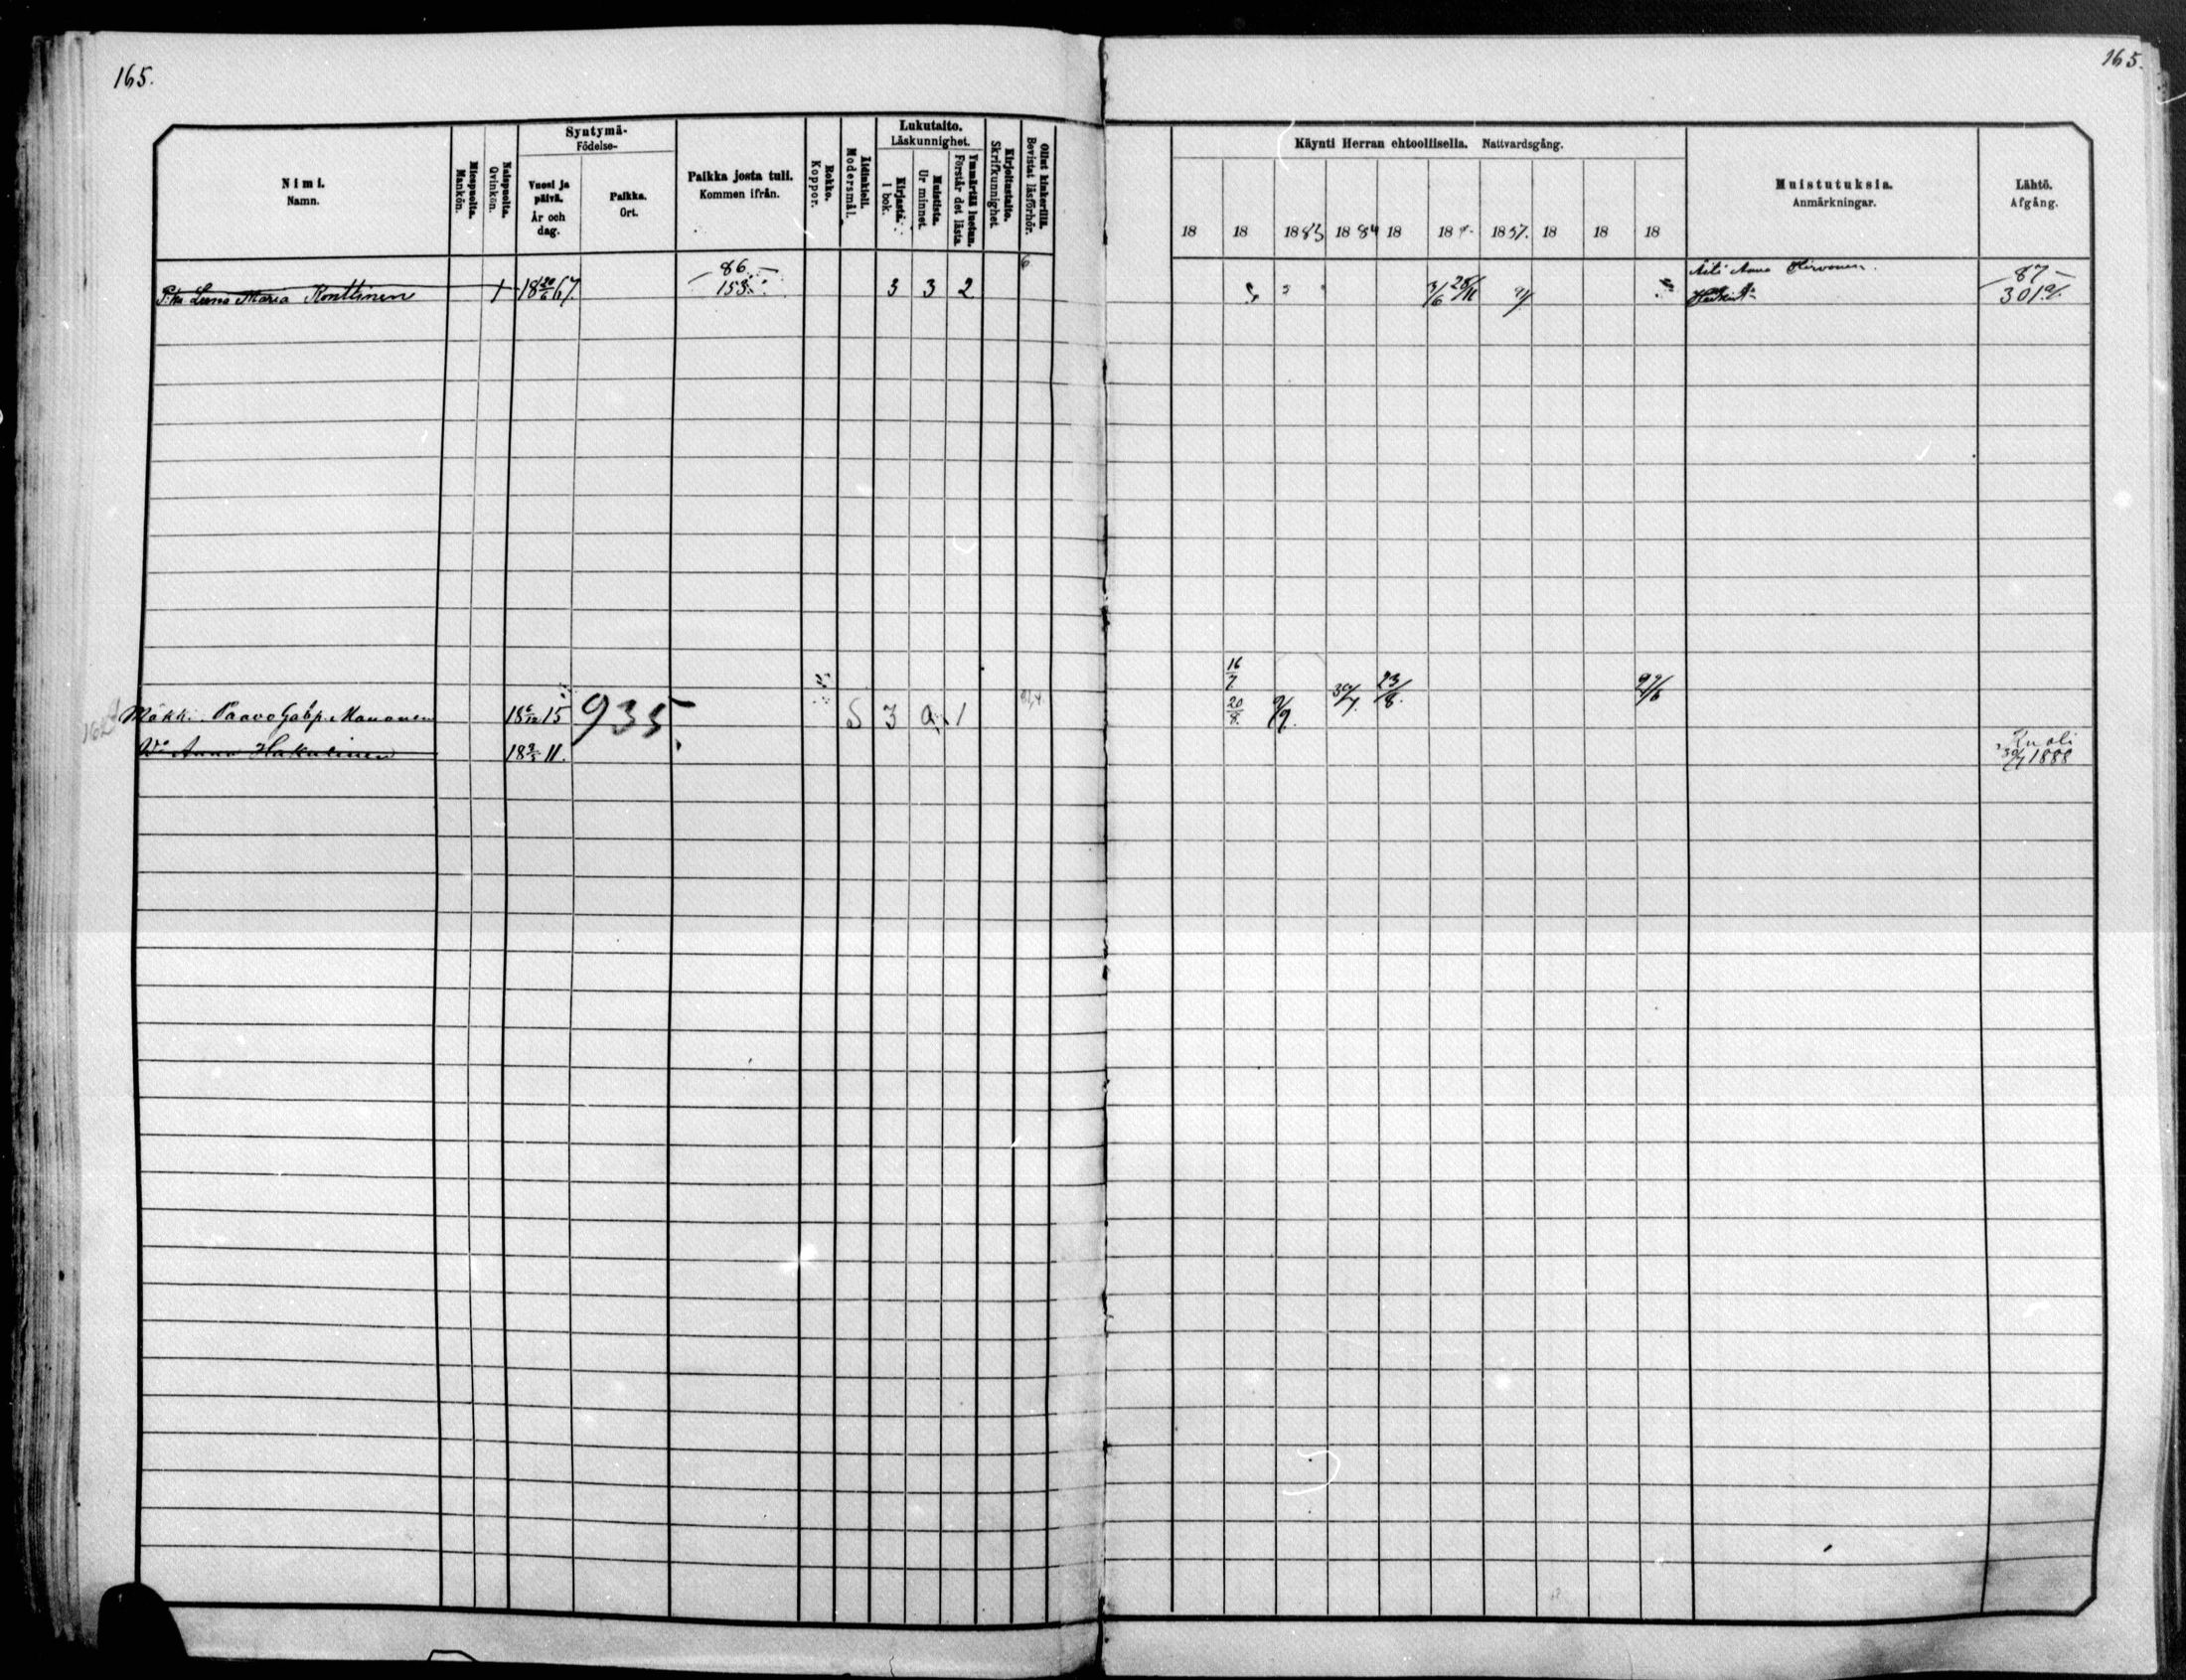 165.
165.
Nimi.
Namn.
Miespuolta.
Mankön.
Naispuolta.
Qvinkön.
Syntymä-
Födelse-
Vuosi ja
päivä.
År och
dag.
Paikka.
Ort.
Paikka josta tuli.
Kommen ifrån.
Rokko.
Koppor.
Äidinkieli.
Modersmål.
Lukutaito.
Läskunnighet.
Kirjasta.
I bok.
Muistista.
Ur minnet.
Ymmärtää luetun.
Förstår det lästa.
Kirjoitustaito.
Skrifkunnighet.
Ollut kinkerillä.
Bevistat läsförhör.
Käynti Herran ehtoollisella. Nattvardsgång.
18 18 1883 1884 18 18 1887. 18 18 18
Muistutuksia.
Anmärkningar.
Lähtö.
Afgång.
86. 6 Äiti Anna Hirvonen. 87
Leena Maria Konttinen 1 18 20/6 67. 153. 3 3 2 3/6 28/11 301
16/7 23/8.
Mökki. Paavo Gabp. Manonen 18 6/12 15 935. S 3 a 1 20/8. 9/9.
Anna Hakulinen 18 11. Kuoli
1888